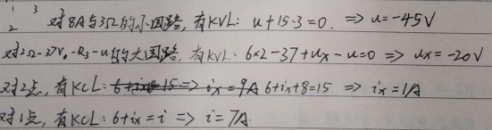 1 3
2 对8A与3Ω的小回路，有KVL: u+15·3=0. ⇒ u=-45V
对2Ω-27V-R₃-u的大回路，有KVL: 6×2-37+uₓ-u=0 ⇒ uₓ=-20V
对2点，有KCL: 6+iₓ+8=15 ⇒ iₓ=9A 6+iₓ+8=15 ⇒ iₓ=1A
对1点，有KCL: 6+iₓ=i ⇒ i=7A.